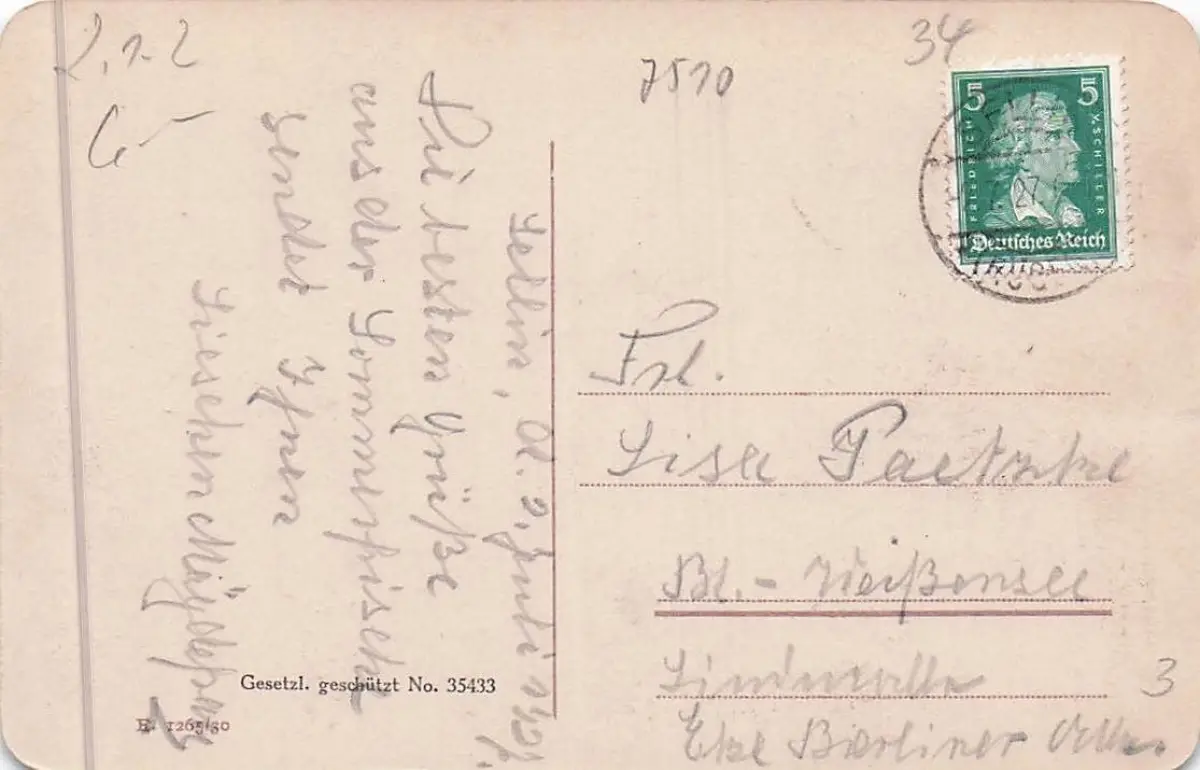 2,12
6,-
7510
34
5 5
FRIEDRICH V. SCHILLER
27
Deutsches Reich
Sellin, d. 2. Juli
Die besten Grüße
aus der Sommerfrische
sendet Ihnen
Lieschen
Frl.
Lisa Paetzke
Bl.- Weißensee
Lindenallee
Ecke Berliner Allee
3
Gesetzl. geschützt No. 35433
E. 1265/30